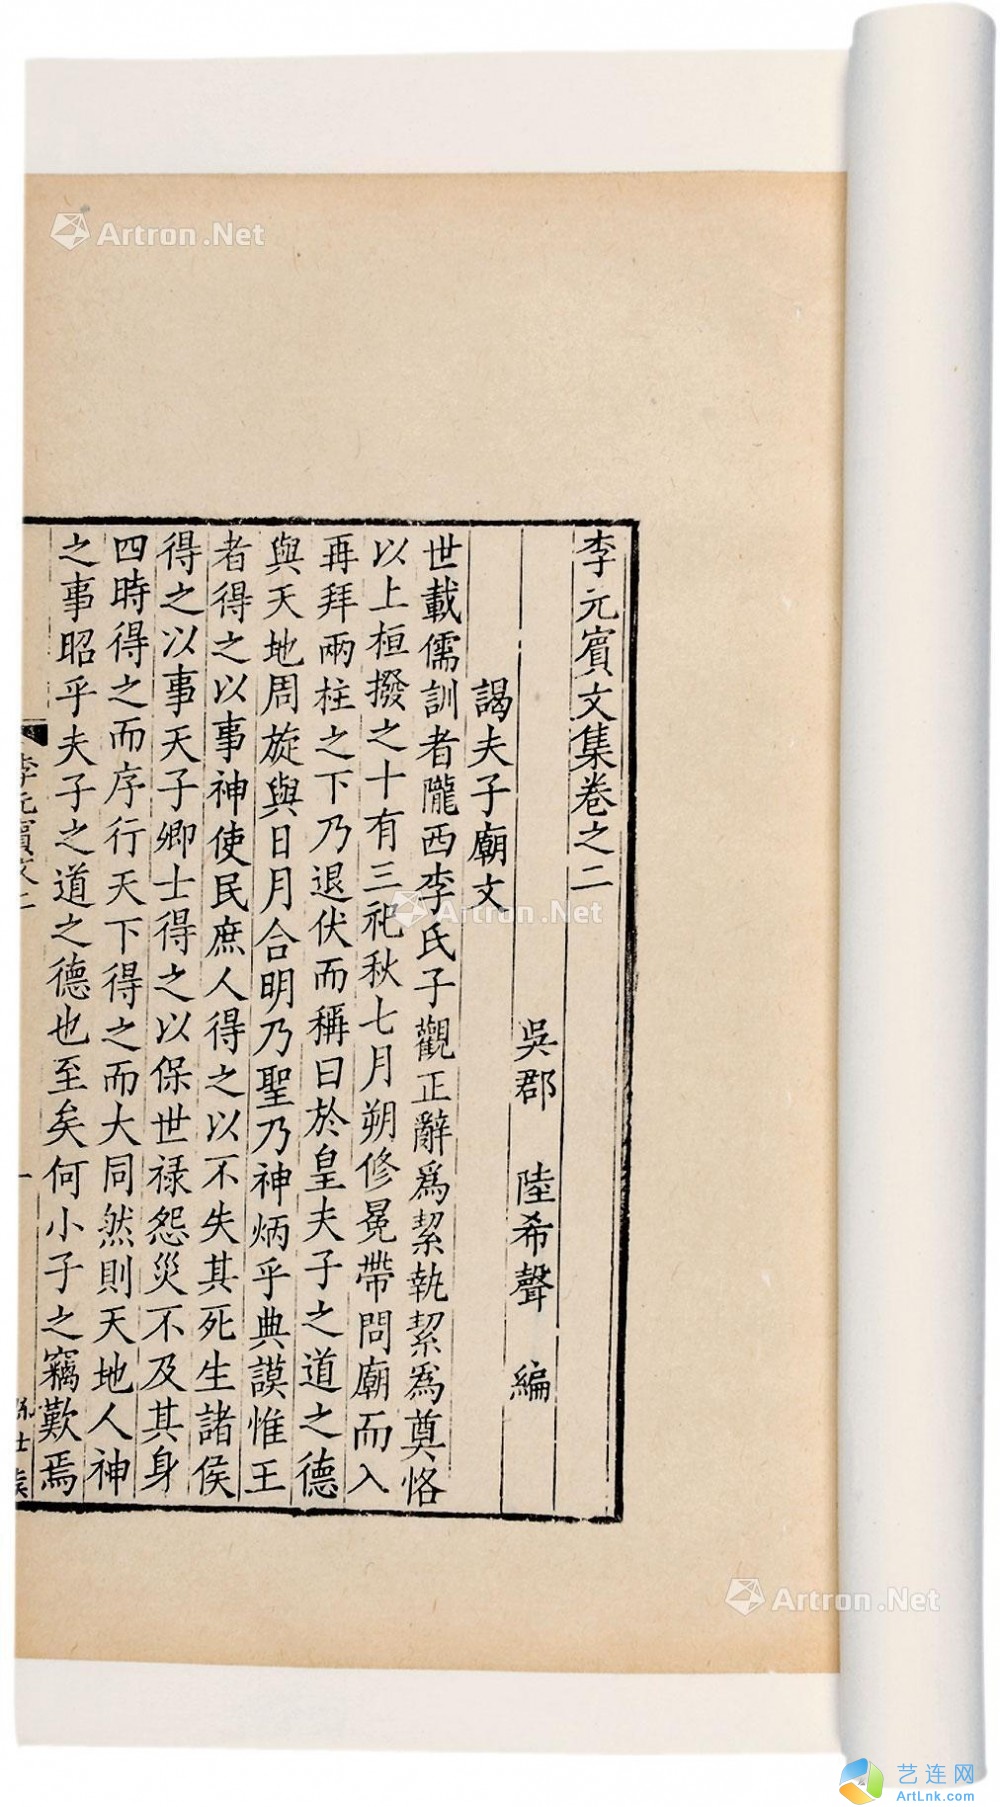 李元賓文集卷之二
吳郡 陸希聲 編
謁夫子廟文
世載儒訓者隴西李氏子觀正辭爲絜執絜爲奠恪
以上桓撥之十有三祀秋七月朔修冕帶問廟而入
再拜兩柱之下乃退伏而稱曰於皇夫子之道之德
與天地周旋與日月合明乃聖乃神炳乎典謨惟王
者得之以事神使民庶人得之以不失其死生諸侯
得之以事天子卿士得之以保世禄怨災不及其身
四時得之而序行天下得之而大同然則天地人神
之事昭乎夫子之道之德也至矣何小子之竊歎焉
李元賓文二
一
Artron.Net
Artron.Net
Artron.Net
艺连网
ArtLnk.com